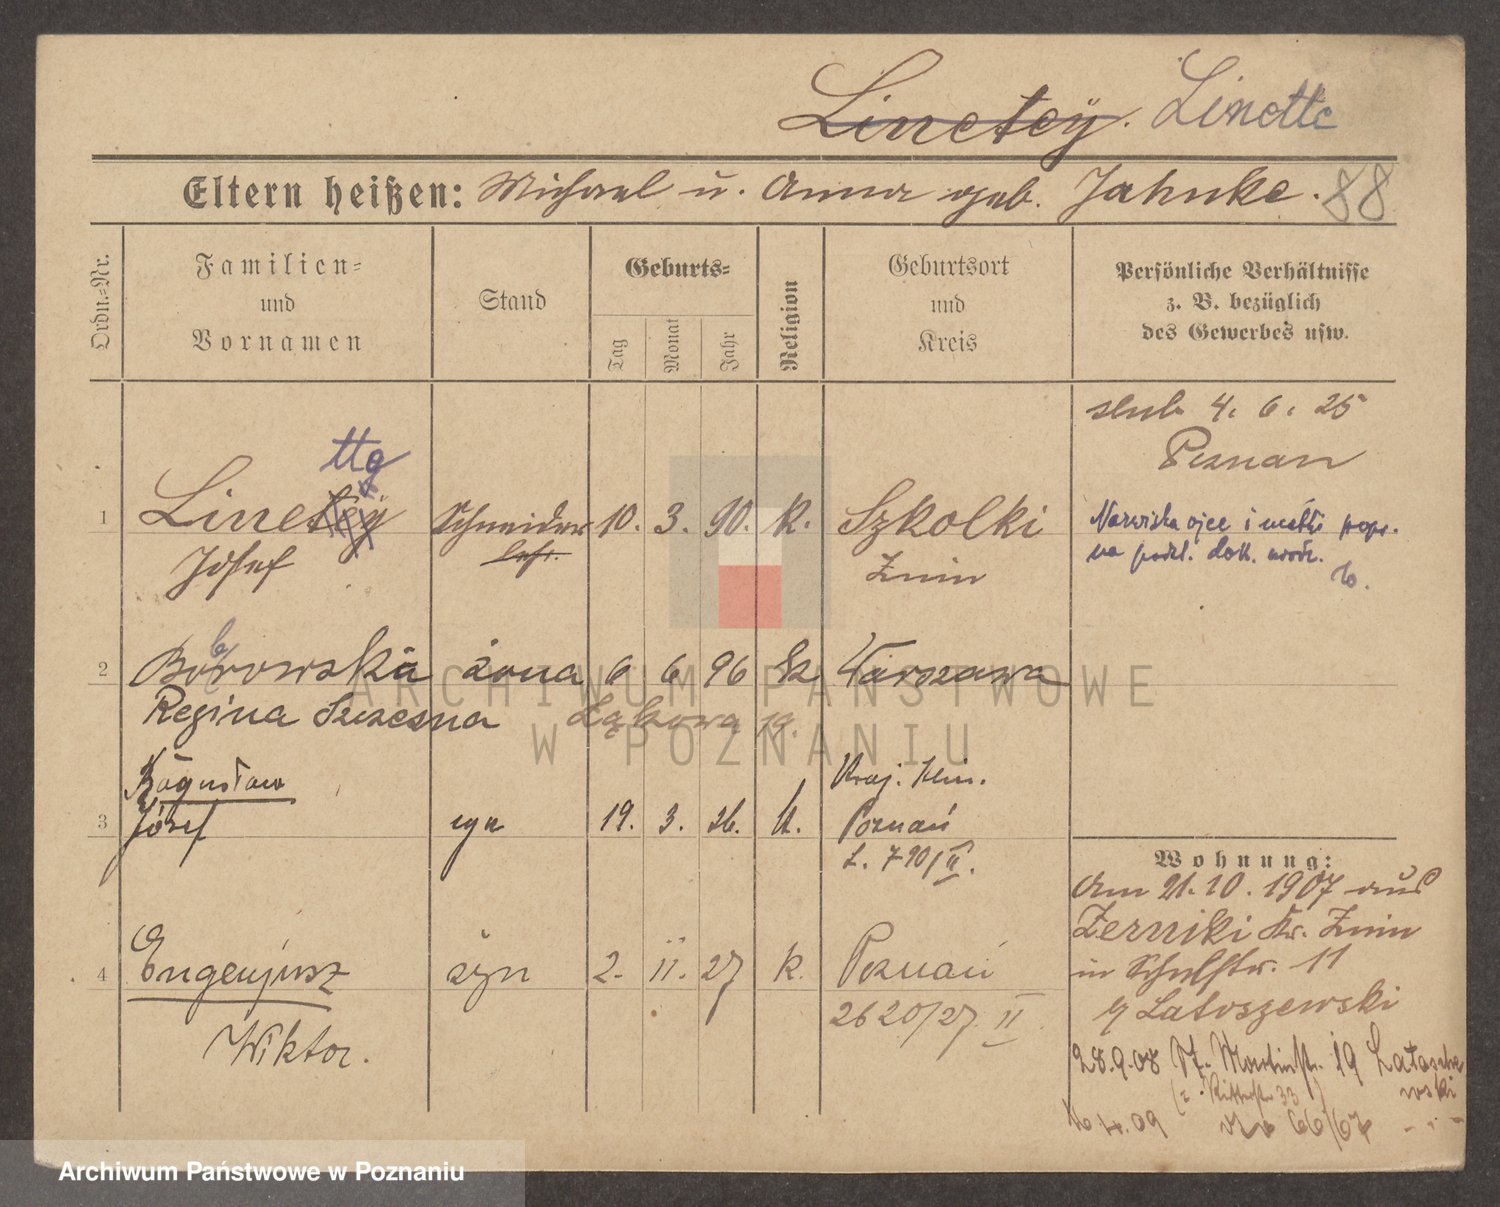 Linetey. Linette
Eltern heißen: Michael u. Anna geb. Jahnke. 88
Ordn.-Nr.
Familien= und Vornamen
Stand
Geburts=
Tag Monat Jahr
Religion
Geburtsort und Kreis
Persönliche Verhältnisse
z. B. bezüglich
des Gewerbes usw.
ślub 4. 6. 25
Poznan
tty
1 Linetey Schneider 10. 3. 90. k. Szkolki
Josef Lehr. Znin
Nazwiska ojca i matki popr.
na podst. dok. urodz.
b
2 Borowska żona 6 6 96 Warszawa
Regina Szczesna Łąkowa 19.
Bogusław
3 Józef syn 19. 3. 26. k. Poznań
L. 790/II.
4 Eugenjusz syn 2. 11. 27 k. Poznań
2620/27 II
Wiktor.
Wohnung:
Am 21.10.1907 aus
Zerniki Kr. Znin
in Schulstr. 11
b/ Latoszewski
28.9.08 St. Martinstr. 19 Latosze
wski
(z. Ritterstr 33)
4.09 66/67 - " -
ARCHIWUM PAŃSTWOWE
W POZNANIU
Archiwum Państwowe w Poznaniu